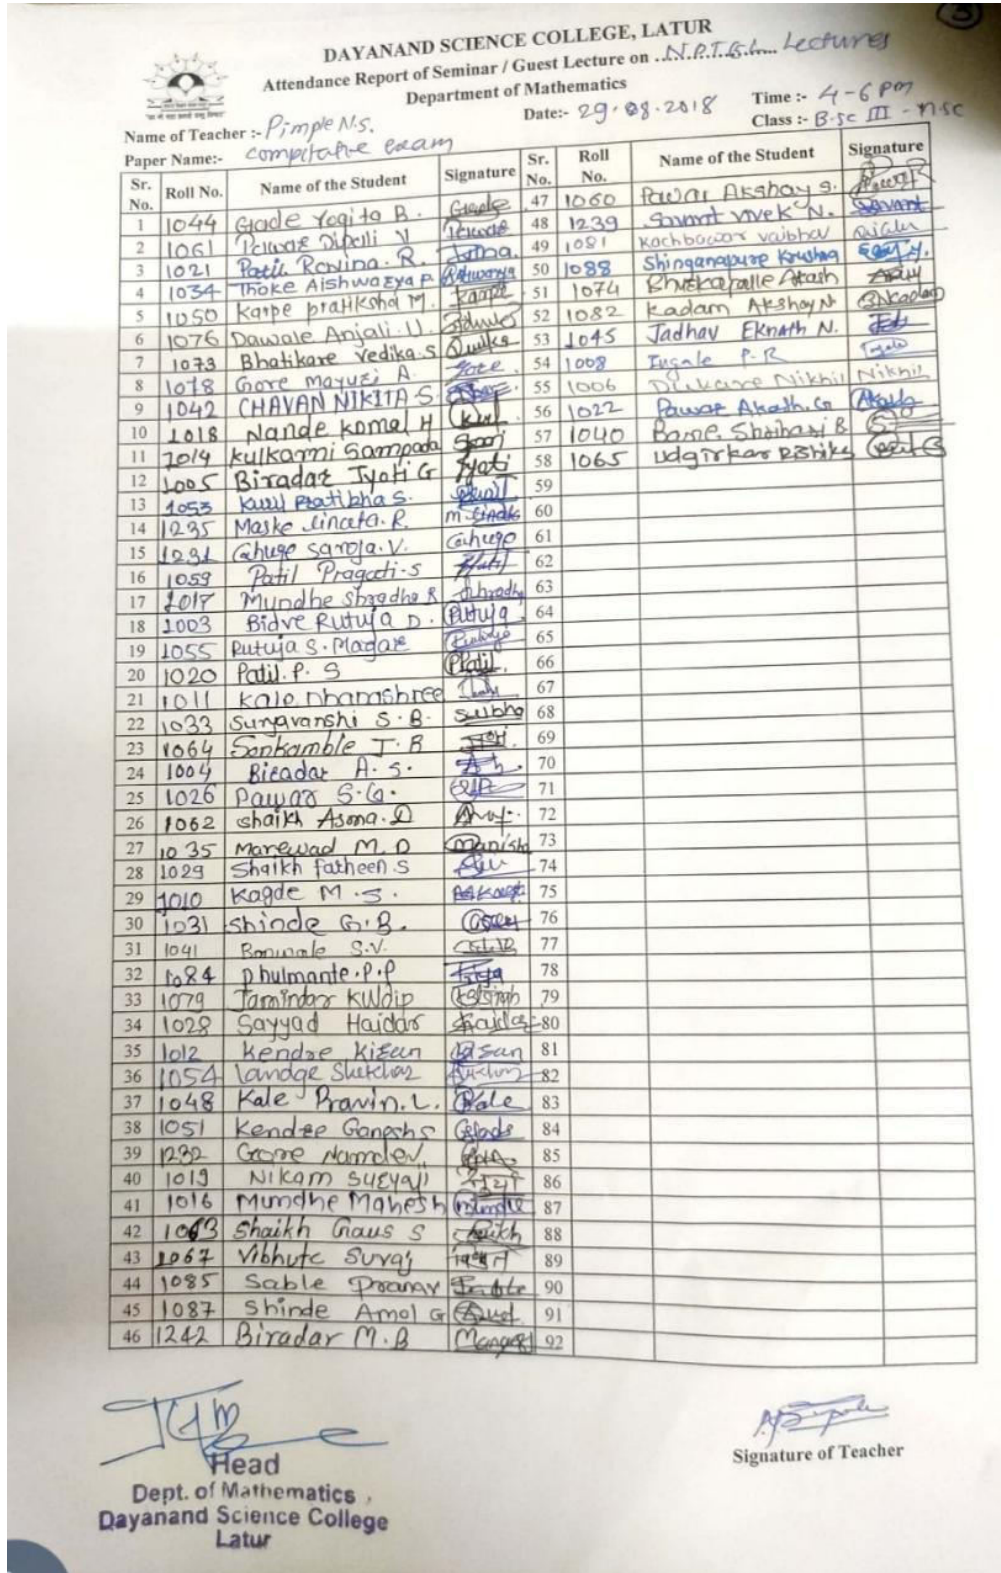 3
DAYANAND SCIENCE COLLEGE, LATUR
Attendance Report of Seminar / Guest Lecture on ..N.P.T.E.L.... Lectures
Department of Mathematics
Name of Teacher :- Pimple N.S.
Date:- 29.08.2018
Time :- 4-6 Pm
Paper Name:- compitative exam
Class :- B.sc III - M.sc
Sr. No. Roll No. Name of the Student Signature
1 1044 Gade Yogita B. Gade
2 1061 Pawar Dipali V
3 1021 Patil Ravina. R.
4 1034 Thoke Aishwarya P Aishwarya
5 1050 Karpe pratiksha M. Karpe
6 1076 Dawale Anjali. U.
7 1073 Bhatikare Vedika. S
8 1078 Gore Mayuri A. Gore
9 1042 CHAVAN NIKITA S.
10 1018 Nande Komal H
11 1014 Kulkarni Sampada
12 1005 Biradar Jyoti G Jyoti
13 1053 Patibha S.
14 1235 Maske R.
15 1231 Ghuge Saroja. V. Ghuge
16 1059 Patil Pragati-S Patil
17 1017 Mundhe Shradha R Shradha
18 1003 Bidve Rutuja D. Rutuja
19 1055 Rutuja S. Magar
20 1020 Patil. P. S Patil
21 1011 Kale Dhanashree
22 1033 Suryavanshi S. B.
23 1064 Sonkamble J. B
24 1004 Biradar A. S.
25 1026 Pawar S. G.
26 1062 Shaikh Asma. D
27 1035 Marewad M. D Manisha
28 1029 Shaikh fatheen. S
29 1010 Kagde M. S.
30 1031 Shinde G. B.
31 1041 S.V.
32 1084 Dhulmante. P. P
33 1079 Jamindar Kuldip
34 1028 Sayyad Haidar Haidar
35 1012 Kendre Kisan Kisan
36 1054 Landge Shekhar
37 1048 Kale Pravin. L. Kale
38 1051 Kendre Ganesh S
39 1232 Gore Namdev
40 1019 Nikam Suryaji
41 1016 Mundhe Mahesh Mundhe
42 1063 Shaikh Gaus S Shaikh
43 1067 Vibhute Suraj
44 1085 Sable Pranav Sable
45 1087 Shinde Amol G
46 1242 Biradar M. B
Sr. No. Roll No. Name of the Student Signature
47 1060 Pawar Akshay S.
48 1239 Savant Vivek N. Savant
49 1081 Kachbawar vaibhav
50 1088 Shinganapure Krushna
51 1074 Akash
52 1082 Kadam Akshay N
53 1045 Jadhav Eknath N.
54 1008 Ingale P. R Ingale
55 1006 Nikhil Nikhil
56 1022 Pawar Akash. G Akash
57 1040 Bame B
58 1065 Udgirkar Rishike
59
60
61
62
63
64
65
66
67
68
69
70
71
72
73
74
75
76
77
78
79
80
81
82
83
84
85
86
87
88
89
90
91
92
Head
Dept. of Mathematics,
Dayanand Science College
Latur
Signature of Teacher